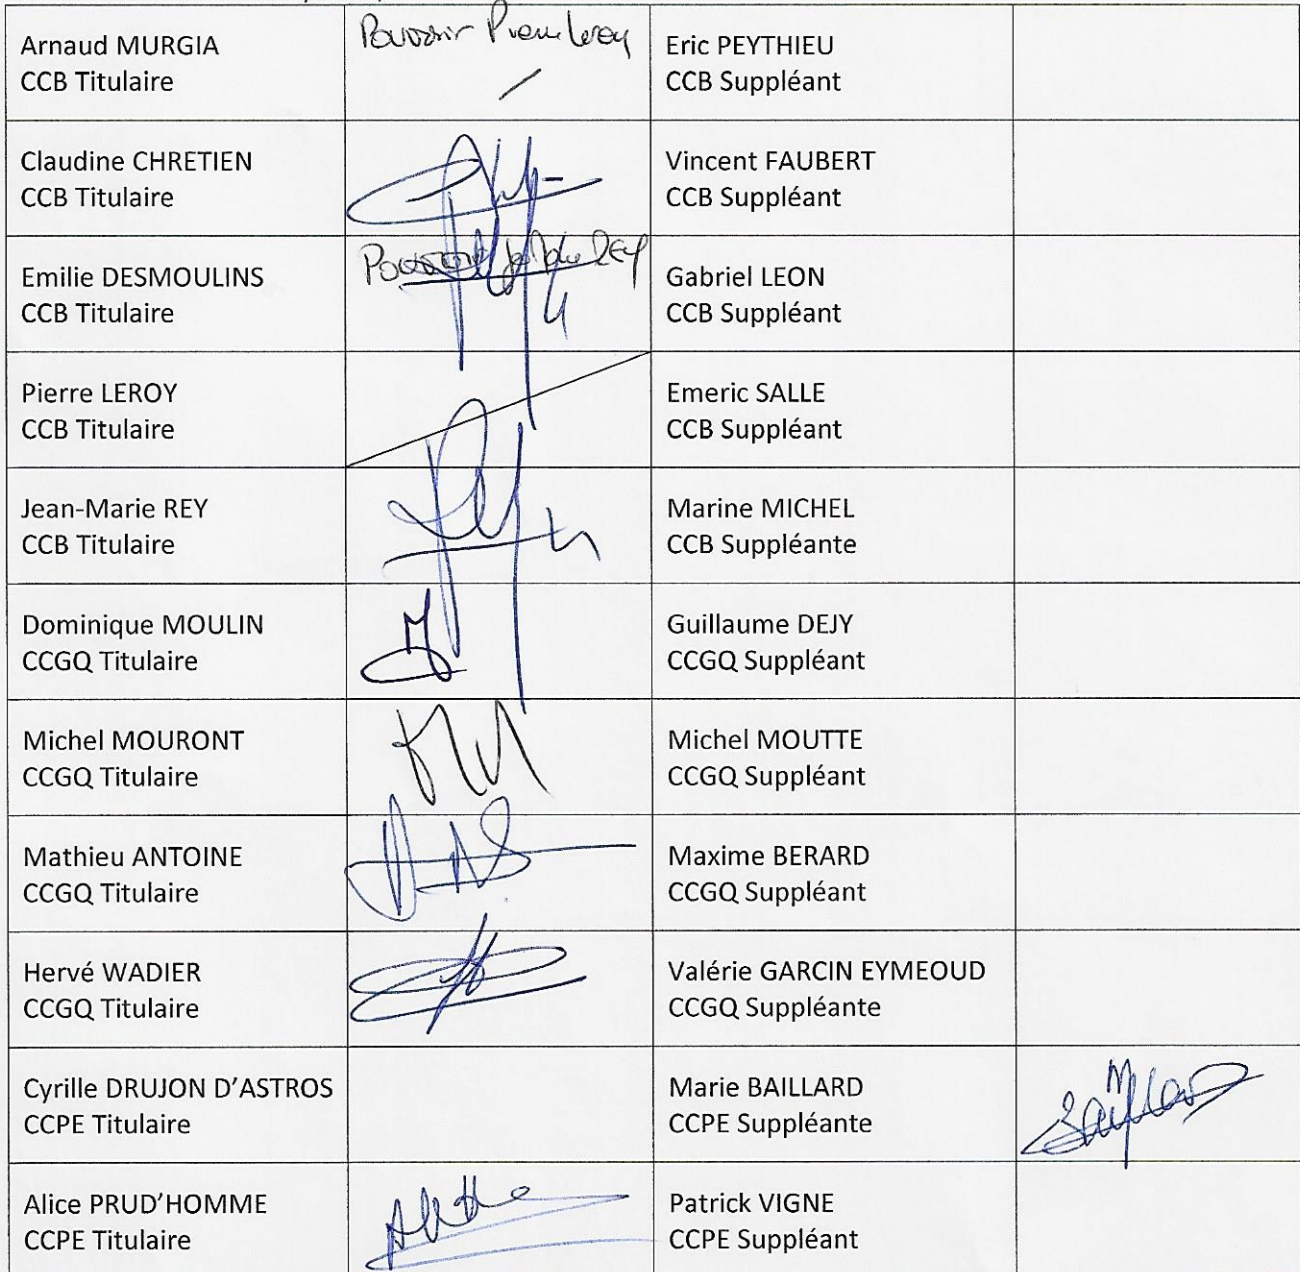 Arnaud MURGIA
CCB Titulaire
Pouvoir Pierre Leroy
Eric PEYTHIEU
CCB Suppléant
Claudine CHRETIEN
CCB Titulaire
Vincent FAUBERT
CCB Suppléant
Emilie DESMOULINS
CCB Titulaire
Pouvoir REY
Gabriel LEON
CCB Suppléant
Pierre LEROY
CCB Titulaire
Emeric SALLE
CCB Suppléant
Jean-Marie REY
CCB Titulaire
Marine MICHEL
CCB Suppléante
Dominique MOULIN
CCGQ Titulaire
Guillaume DEJY
CCGQ Suppléant
Michel MOURONT
CCGQ Titulaire
Michel MOUTTE
CCGQ Suppléant
Mathieu ANTOINE
CCGQ Titulaire
Maxime BERARD
CCGQ Suppléant
Hervé WADIER
CCGQ Titulaire
Valérie GARCIN EYMEOUD
CCGQ Suppléante
Cyrille DRUJON D'ASTROS
CCPE Titulaire
Marie BAILLARD
CCPE Suppléante
Alice PRUD'HOMME
CCPE Titulaire
Patrick VIGNE
CCPE Suppléant